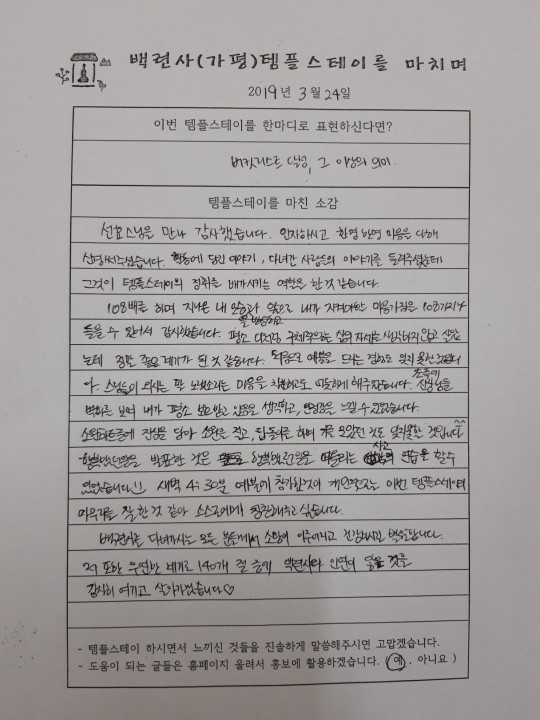 백련사(가평)템플스테이를 마치며
2019년 3월 24일
이번 템플스테이를 한마디로 표현하신다면?
버킷리스트 달성, 그 이상의 의미
템플스테이를 마친 소감
선효스님을 만나 감사했습니다. 인자하시고 한명 한명 마음을 다해
신경써주셨습니다. 활동에 담긴 이야기, 다녀간 사람들의 이야기를 들려주셨는데
그것이 템플스테이의 정취를 배가시키는 역할을 한 것 같습니다.
108배를 하며 지난 내 모습과 앞으로 내가 지켜야할 마음가짐을 108가지나
을 반성하고
들을 수 있어서 감사했습니다. 평소 대체적 구체적으로는 삶의 자세를 생각하지 않고 살았
는데 정말 좋은 계기가 된 것 같습니다. 처음으로 예불을 드리는 점도 잊지 못할
다. 스님들이 외시는 말 보살소리는 마음을 차분하고도 따뜻하게 해주었습니다. 산신님들
초죽에
벽화를 보며 내가 평소 받고 있음을 생각하고, 안정감을 느낄 수 있었습니다.
소원파트를에 진심을 담아 소원을 적고, 탑돌이를 하며 기도 모았던 것도 잊지못할 것입니다^^
행복했던일을 발표한 것은 행복했던순간을 떠올리는 사고의 연습을 할 수
있었습니다!! 새벽 4:30분 예불에 참가한것이 개인적으로는 이번 템플스테이의
마무리를 잘 한 것 같아 스스로에게 칭찬해주고 싶습니다.
백련사를 다녀가시는 모든 분들께서 소망이 이루어지고 건강하시길 바랍니다.
저 또한 우연한 계기로 140개 절 중에 백련사와 인연이 닿은 것을
감사히 여기고 살아가겠습니다♡
- 템플스테이 하시면서 느끼신 것들을 진솔하게 말씀해주시면 고맙겠습니다.
- 도움이 되는 글들은 홈페이지 올려서 홍보에 활용하겠습니다. ( 예 . 아니요 )